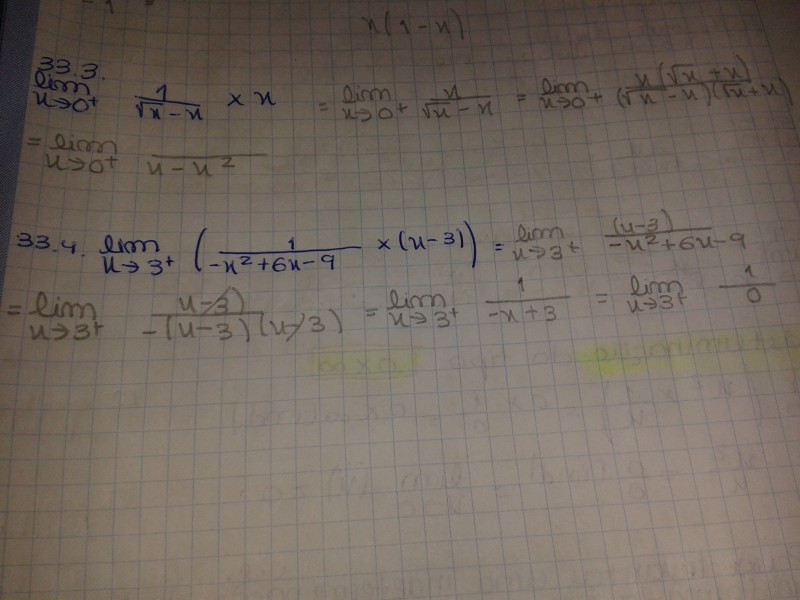 x(1-x)
33.3.
lim x→0⁺ 1/(√x-x) × x = lim x→0⁺ x/(√x-x) = lim x→0⁺ x(√x+x)/((√x-x)(√x+x))
= lim x→0⁺ /(x-x²)
33.4. lim x→3⁺ (1/(-x²+6x-9) × (x-3)) = lim x→3⁺ (x-3)/(-x²+6x-9)
= lim x→3⁺ x-3)/(-(x-3)(x-3)) = lim x→3⁺ 1/(-x+3) = lim x→3⁺ 1/0